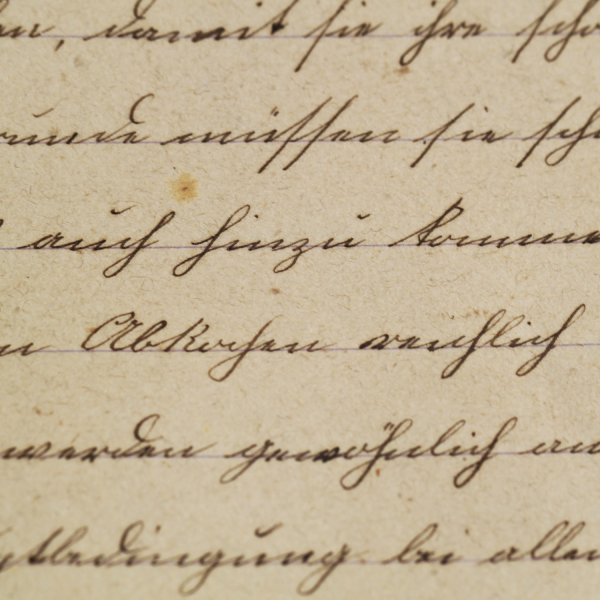 en, damit sie ihre scho
runde müssen sie scho
auch hinzu komme
n Abkochen reichlich
werden gewöhnlich an
ptbedingung bei allen